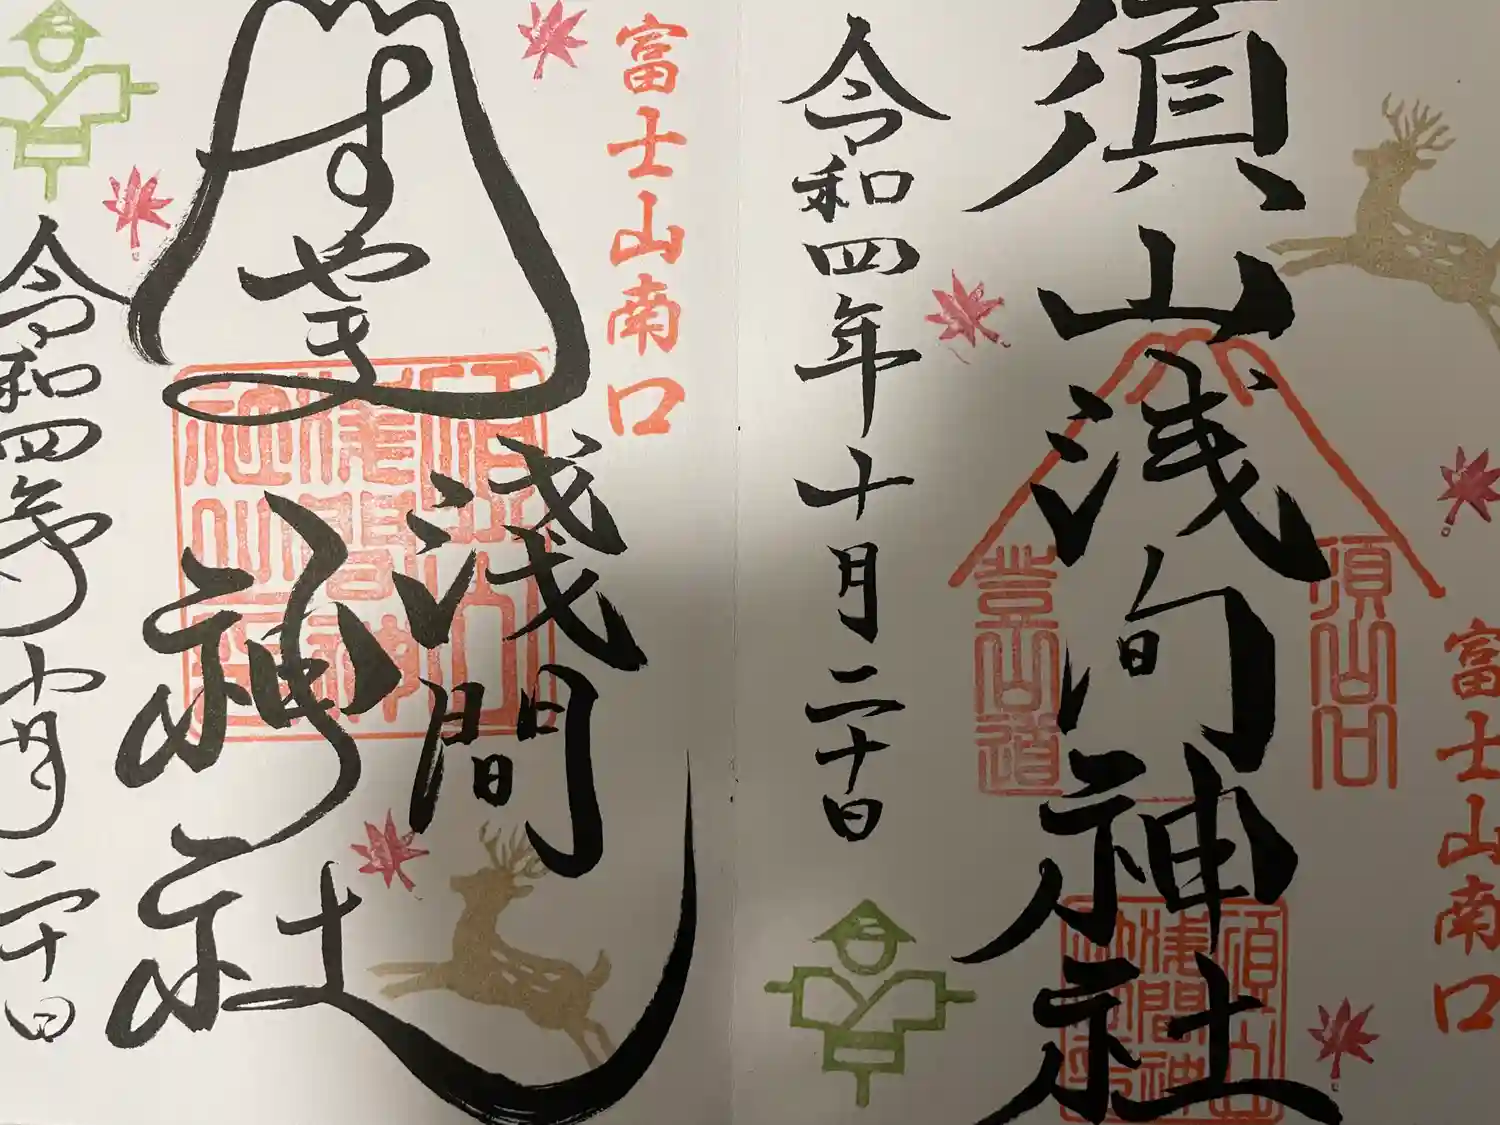 富士山南口
須山浅间神社
須山口
登山道
令和四年十月二十日
富士山南口
すやま
淺間
神社
令和四年十月二十日